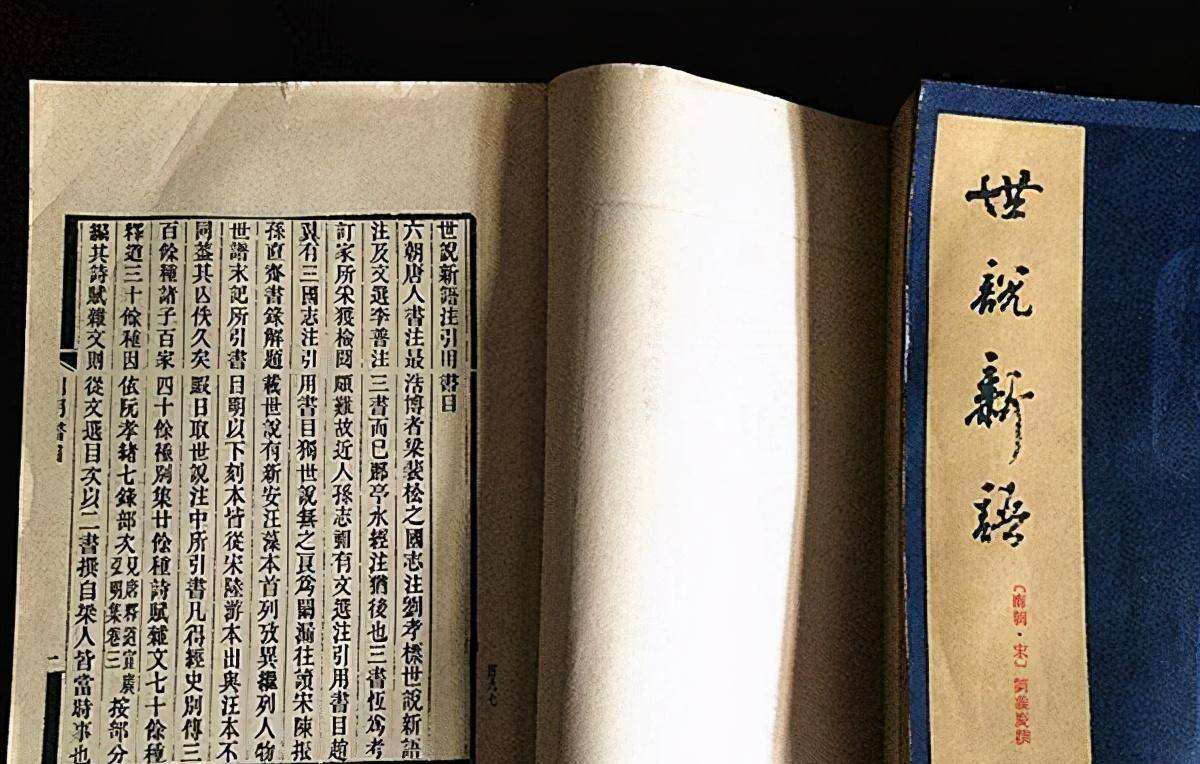 世說新語注引用書目
六朝唐人書注最浩博者梁裴松之國志注劉孝標世說新語
注及文選李善注三書而已酈亭水經注猶後也三書恆爲考
訂家所采獲檢閱頗難故近人孫志祖有文選注引用書目趙
翼有三國志注引用書目獨世說無之良爲闕漏往讀宋陳振
孫直齋書錄解題載世說有新安汪藻本首列攷異繼列人物
世譜末記所引書目明以下刻本皆從宋陸游本出與汪本不
同蓋其亡佚久矣暇日取世說注中所引書凡得經史別傳三
百餘種諸子百家四十餘種別集廿餘種詩賦雜文七十餘種
釋道三十餘種因依阮孝緒七錄部次見唐釋道宣廣弘明集卷三按部分
編其詩賦雜文則從文選目次以二書撰自梁人皆當時事也
一
世說新語
〔南朝·宋〕劉義慶撰